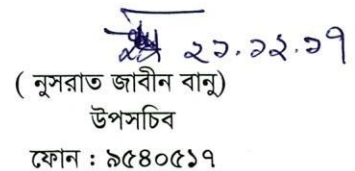 ২১.১২.১৭
( নুসরাত জাবীন বানু)
উপসচিব
ফোন : ৯৫৪০৫১৭